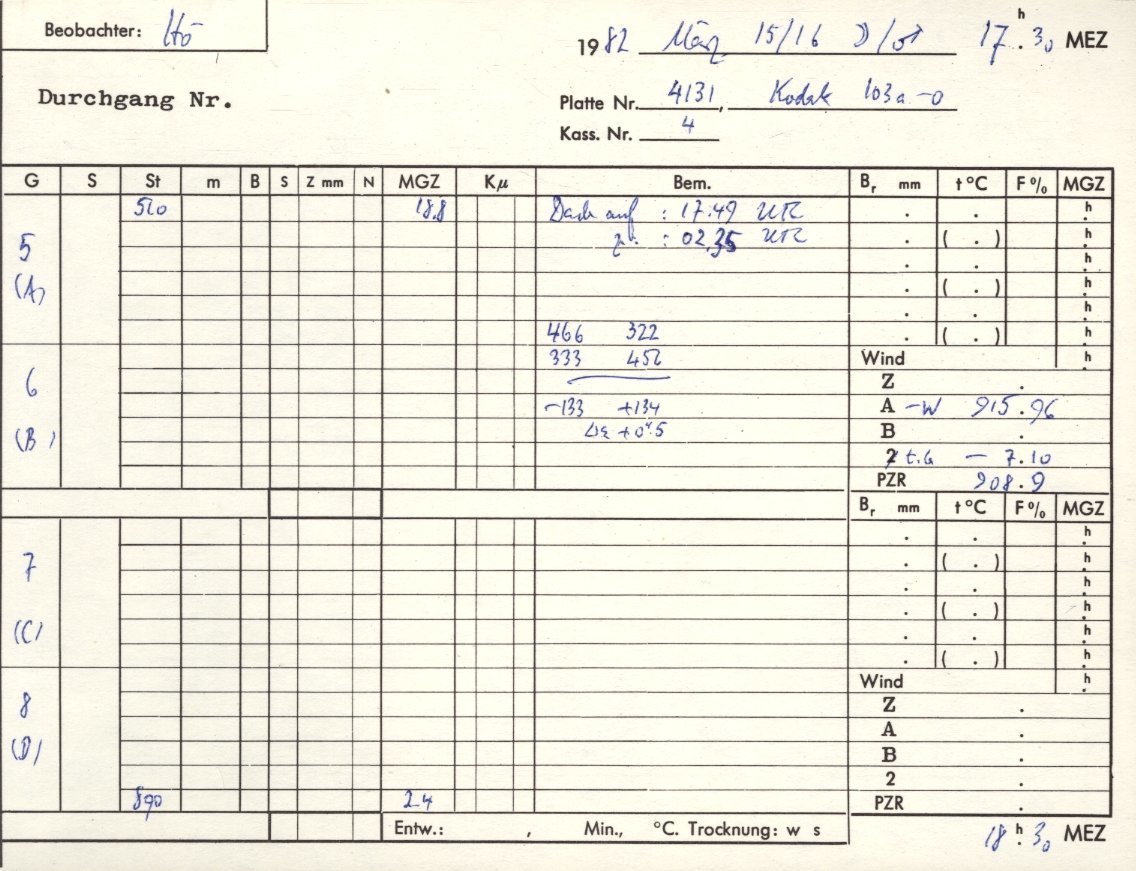 Beobachter: Hö
1982 März 15/16 ☽/♂ 17h.30 MEZ
Durchgang Nr.
Platte Nr. 4131, Kodak 103a-0
Kass. Nr. 4
G S St m B S Z mm N MGZ Kμ Bem. Br mm t°C F% MGZ
510 18.8 Dach auf : 17.49 UTC . . h.
5 zu. : 02.35 UTC . ( . ) h.
. . h.
(A) . ( . ) h.
. . h.
466 322 . ( . ) h.
333 452 Wind h.
6 Z .
-133 +134 A -W 915.96
(B) Δε +0".5 B .
2 t.G - 7.10
PZR 908.9
Br mm t°C F% MGZ
. . h.
7 . ( . ) h.
. . h.
. ( . ) h.
(C) . . h.
. ( . ) h.
Wind h.
8 Z .
A .
(D) B .
2 .
890 24 PZR .
Entw.: , Min., °C. Trocknung: w s
18h.30 MEZ